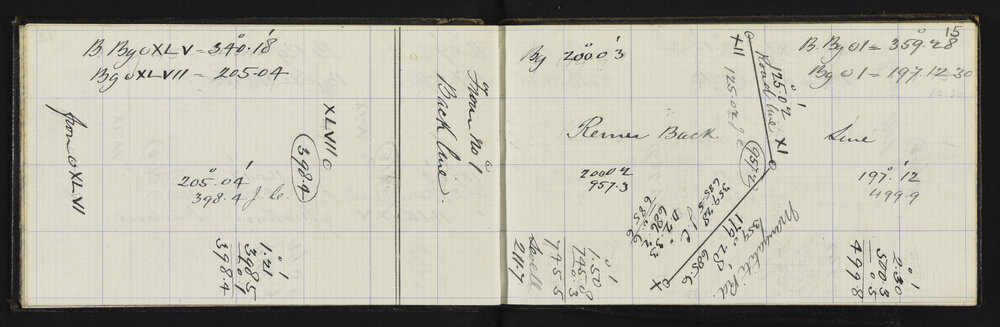 B. Bg o XLV = 340.18
Bg o XLVII = 205.04
from o XLVI
XLVIII o
398.4
205° 04'
398.4 J le
1.21
398.5
398.4
From No 1
Back line
15
By 200° 03'
Back
200 02
957.3
1.50
745.8
0.3
745.5
211.7
XII
Road line
125.02
125.02
XI
957.2
359.28
685.6
179° 28'
685.6
X
Rd.
B. Bg o 1 = 359° 28
Bg o 1 = 197.12.30
Line
197° 12'
499.9
2.30
500.3
0.5
499.8